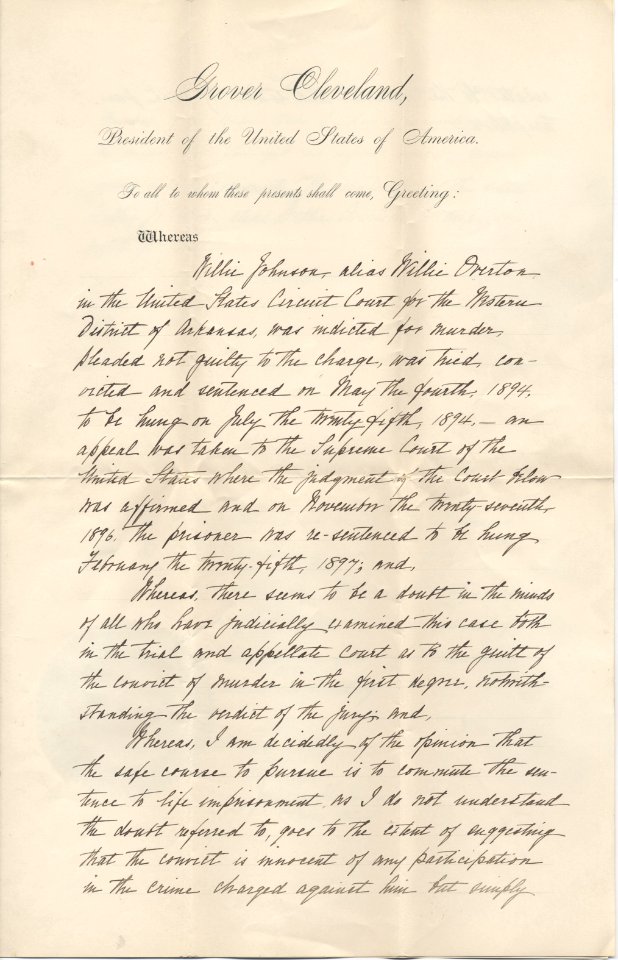 Grover Cleveland,
President of the United States of America.
To all to whom these presents shall come, Greeting:
Whereas
Willie Johnson, alias Willie Overton,
in the United States Circuit Court for the Western
District of Arkansas, was indicted for murder,
pleaded not guilty to the charge, was tried, con-
victed and sentenced on May the fourth, 1894,
to be hung on July the twenty-fifth, 1894,— an
appeal was taken to the Supreme Court of the
United States where the judgment of the Court below
was affirmed and on November the twenty-seventh,
1896, the prisoner was re-sentenced to be hung
February the twenty-fifth, 1897; and,
Whereas, there seems to be a doubt in the minds
of all who have judicially examined this case both
in the trial and appellate court as to the guilt of
the convict of murder in the first degree, notwith-
standing the verdict of the jury; and,
Whereas, I am decidedly of the opinion that
the safe course to pursue is to commute the sen-
tence to life imprisonment, as I do not understand
the doubt referred to, goes to the extent of suggesting
that the convict is innocent of any participation
in the crime charged against him but simply